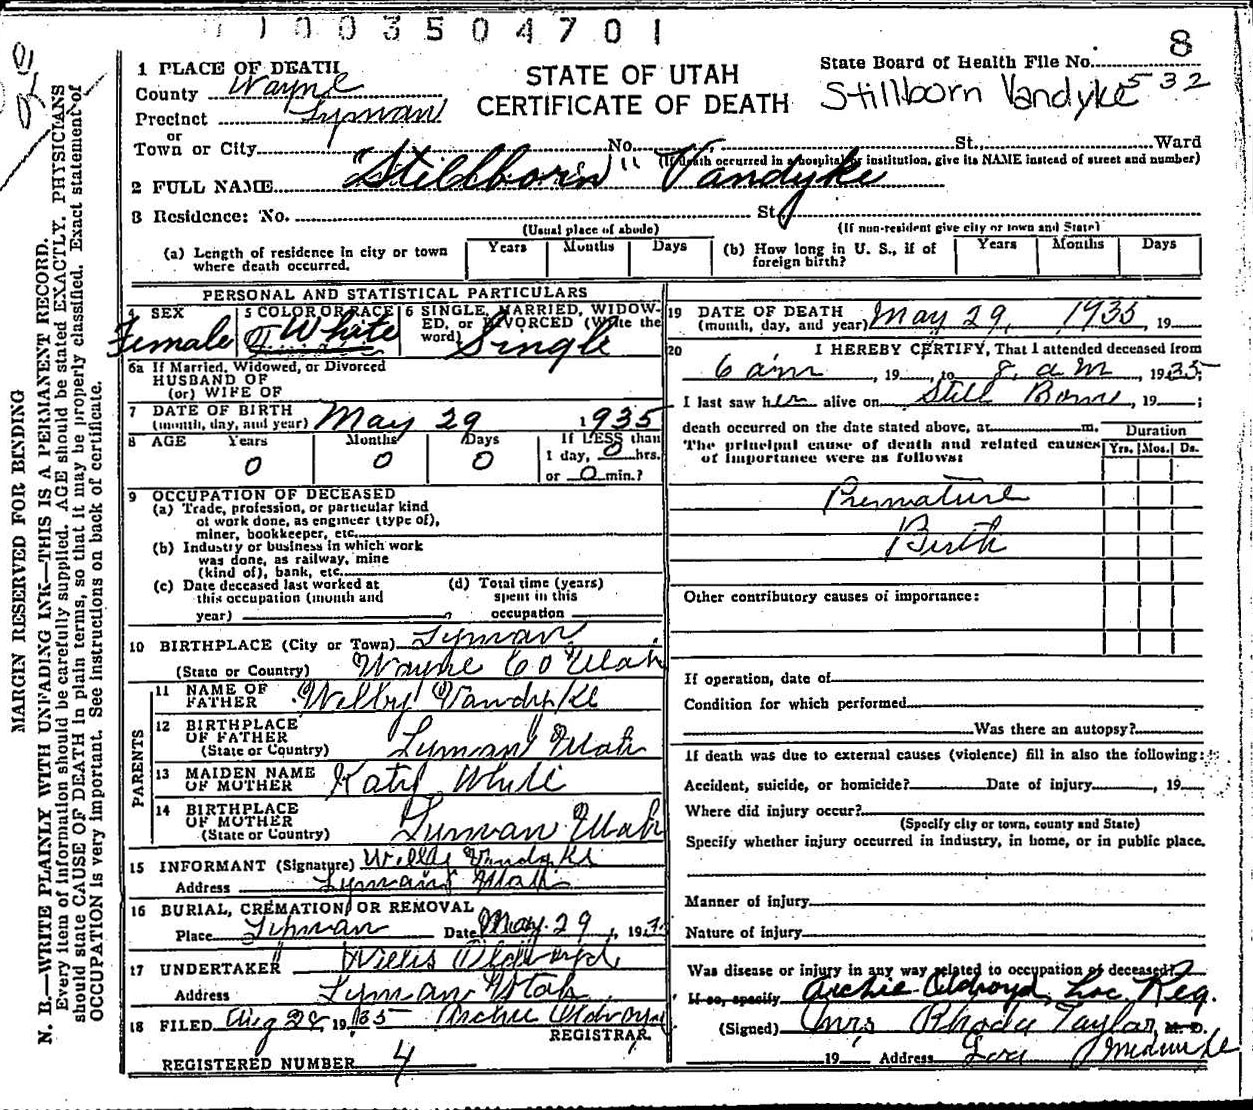 1003504701
8
1 PLACE OF DEATH
County Wayne
Precinct Lyman
or
Town or City
STATE OF UTAH
CERTIFICATE OF DEATH
State Board of Health File No.
Stillborn Vandyke 532
No. St., Ward
(If death occurred in a hospital or institution, give its NAME instead of street and number)
2 FULL NAME "Stillborn" Vandyke
3 Residence: No. St.
(Usual place of abode) (If non-resident give city or town and State)
(a) Length of residence in city or town where death occurred. Years Months Days
(b) How long in U. S., if of foreign birth? Years Months Days
PERSONAL AND STATISTICAL PARTICULARS
4 SEX Female
5 COLOR OR RACE White
6 SINGLE, MARRIED, WIDOWED, or DIVORCED (Write the word) Single
6a If Married, Widowed, or Divorced
HUSBAND OF
(or) WIFE OF
7 DATE OF BIRTH
(month, day, and year) May 29 1935
8 AGE Years Months Days If LESS than
0 0 0 1 day, 0 hrs.
or 0 min.?
9 OCCUPATION OF DECEASED
(a) Trade, profession, or particular kind
of work done, as engineer (type of),
miner, bookkeeper, etc.
(b) Industry or business in which work
was done, as railway, mine
(kind of), bank, etc.
(c) Date deceased last worked at
this occupation (month and
year)
(d) Total time (years)
spent in this
occupation
10 BIRTHPLACE (City or Town) Lyman
(State or Country) Wayne Co Utah
PARENTS
11 NAME OF
FATHER Welby Vandyke
12 BIRTHPLACE
OF FATHER
(State or Country) Lyman Utah
13 MAIDEN NAME
OF MOTHER Katy White
14 BIRTHPLACE
OF MOTHER
(State or Country) Lyman Utah
15 INFORMANT (Signature) Welby Vandyke
Address Lyman Utah
16 BURIAL, CREMATION, OR REMOVAL
Place Lyman Date May 29, 193
17 UNDERTAKER Willis Oldroyd
Address Lyman Utah
18 FILED Aug 28 1935 Archie Oldroyd
REGISTRAR.
REGISTERED NUMBER 4
19 DATE OF DEATH
(month, day, and year) May 29, 1935, 19
20 I HEREBY CERTIFY, That I attended deceased from
6 am, 19, to 8 a m 1935;
I last saw her alive on Still Born, 19;
death occurred on the date stated above, at m.
The principal cause of death and related causes
of importance were as follows:
Duration
Yrs. Mos. Ds.
Premature
Birth
Other contributory causes of importance:
If operation, date of
Condition for which performed
Was there an autopsy?
If death was due to external causes (violence) fill in also the following:
Accident, suicide, or homicide? Date of injury, 19
Where did injury occur?
(Specify city or town, county and State)
Specify whether injury occurred in industry, in home, or in public place.
Manner of injury
Nature of injury
Was disease or injury in any way related to occupation of deceased?
If so, specify Archie Oldroyd, Loc. Reg.
(Signed) Mrs Rhoda Taylor, M. D.
19 Address Loa Midwife
MARGIN RESERVED FOR BINDING
N. B.—WRITE PLAINLY WITH UNFADING INK—THIS IS A PERMANENT RECORD.
Every item of information should be carefully supplied. AGE should be stated EXACTLY. PHYSICIANS
should state CAUSE OF DEATH in plain terms, so that it may be properly classified. Exact statement of
OCCUPATION is very important. See instructions on back of certificate.